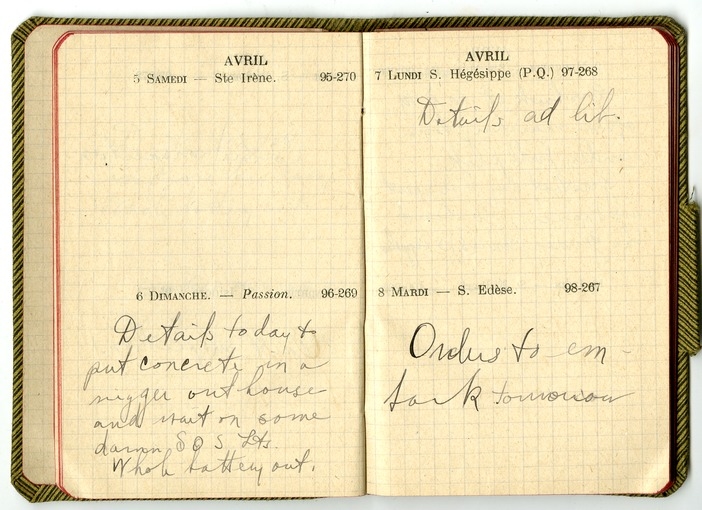 AVRIL
5 SAMEDI — Ste Irène. 95-270
6 DIMANCHE. — Passion. 96-269
Details today to
put concrete in a
nigger outhouse
and wait on some
damn S O S Lts.
Whole battery out.
AVRIL
7 LUNDI S. Hégésippe (P.Q.) 97-268
Details ad lib.
8 MARDI — S. Edèse. 98-267
Orders to em-
bark tomorrow